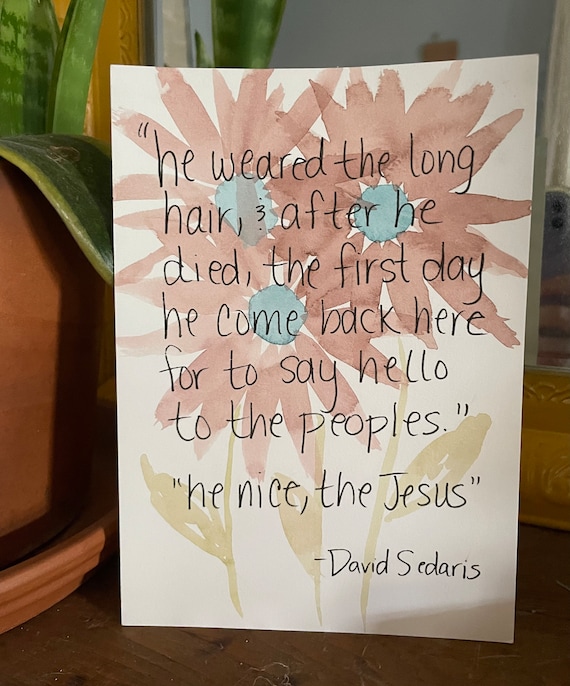 "he weared the long
hair, & after he
died, the first day
he come back here
for to say hello
to the peoples."
"he nice, the Jesus"
-David Sedaris